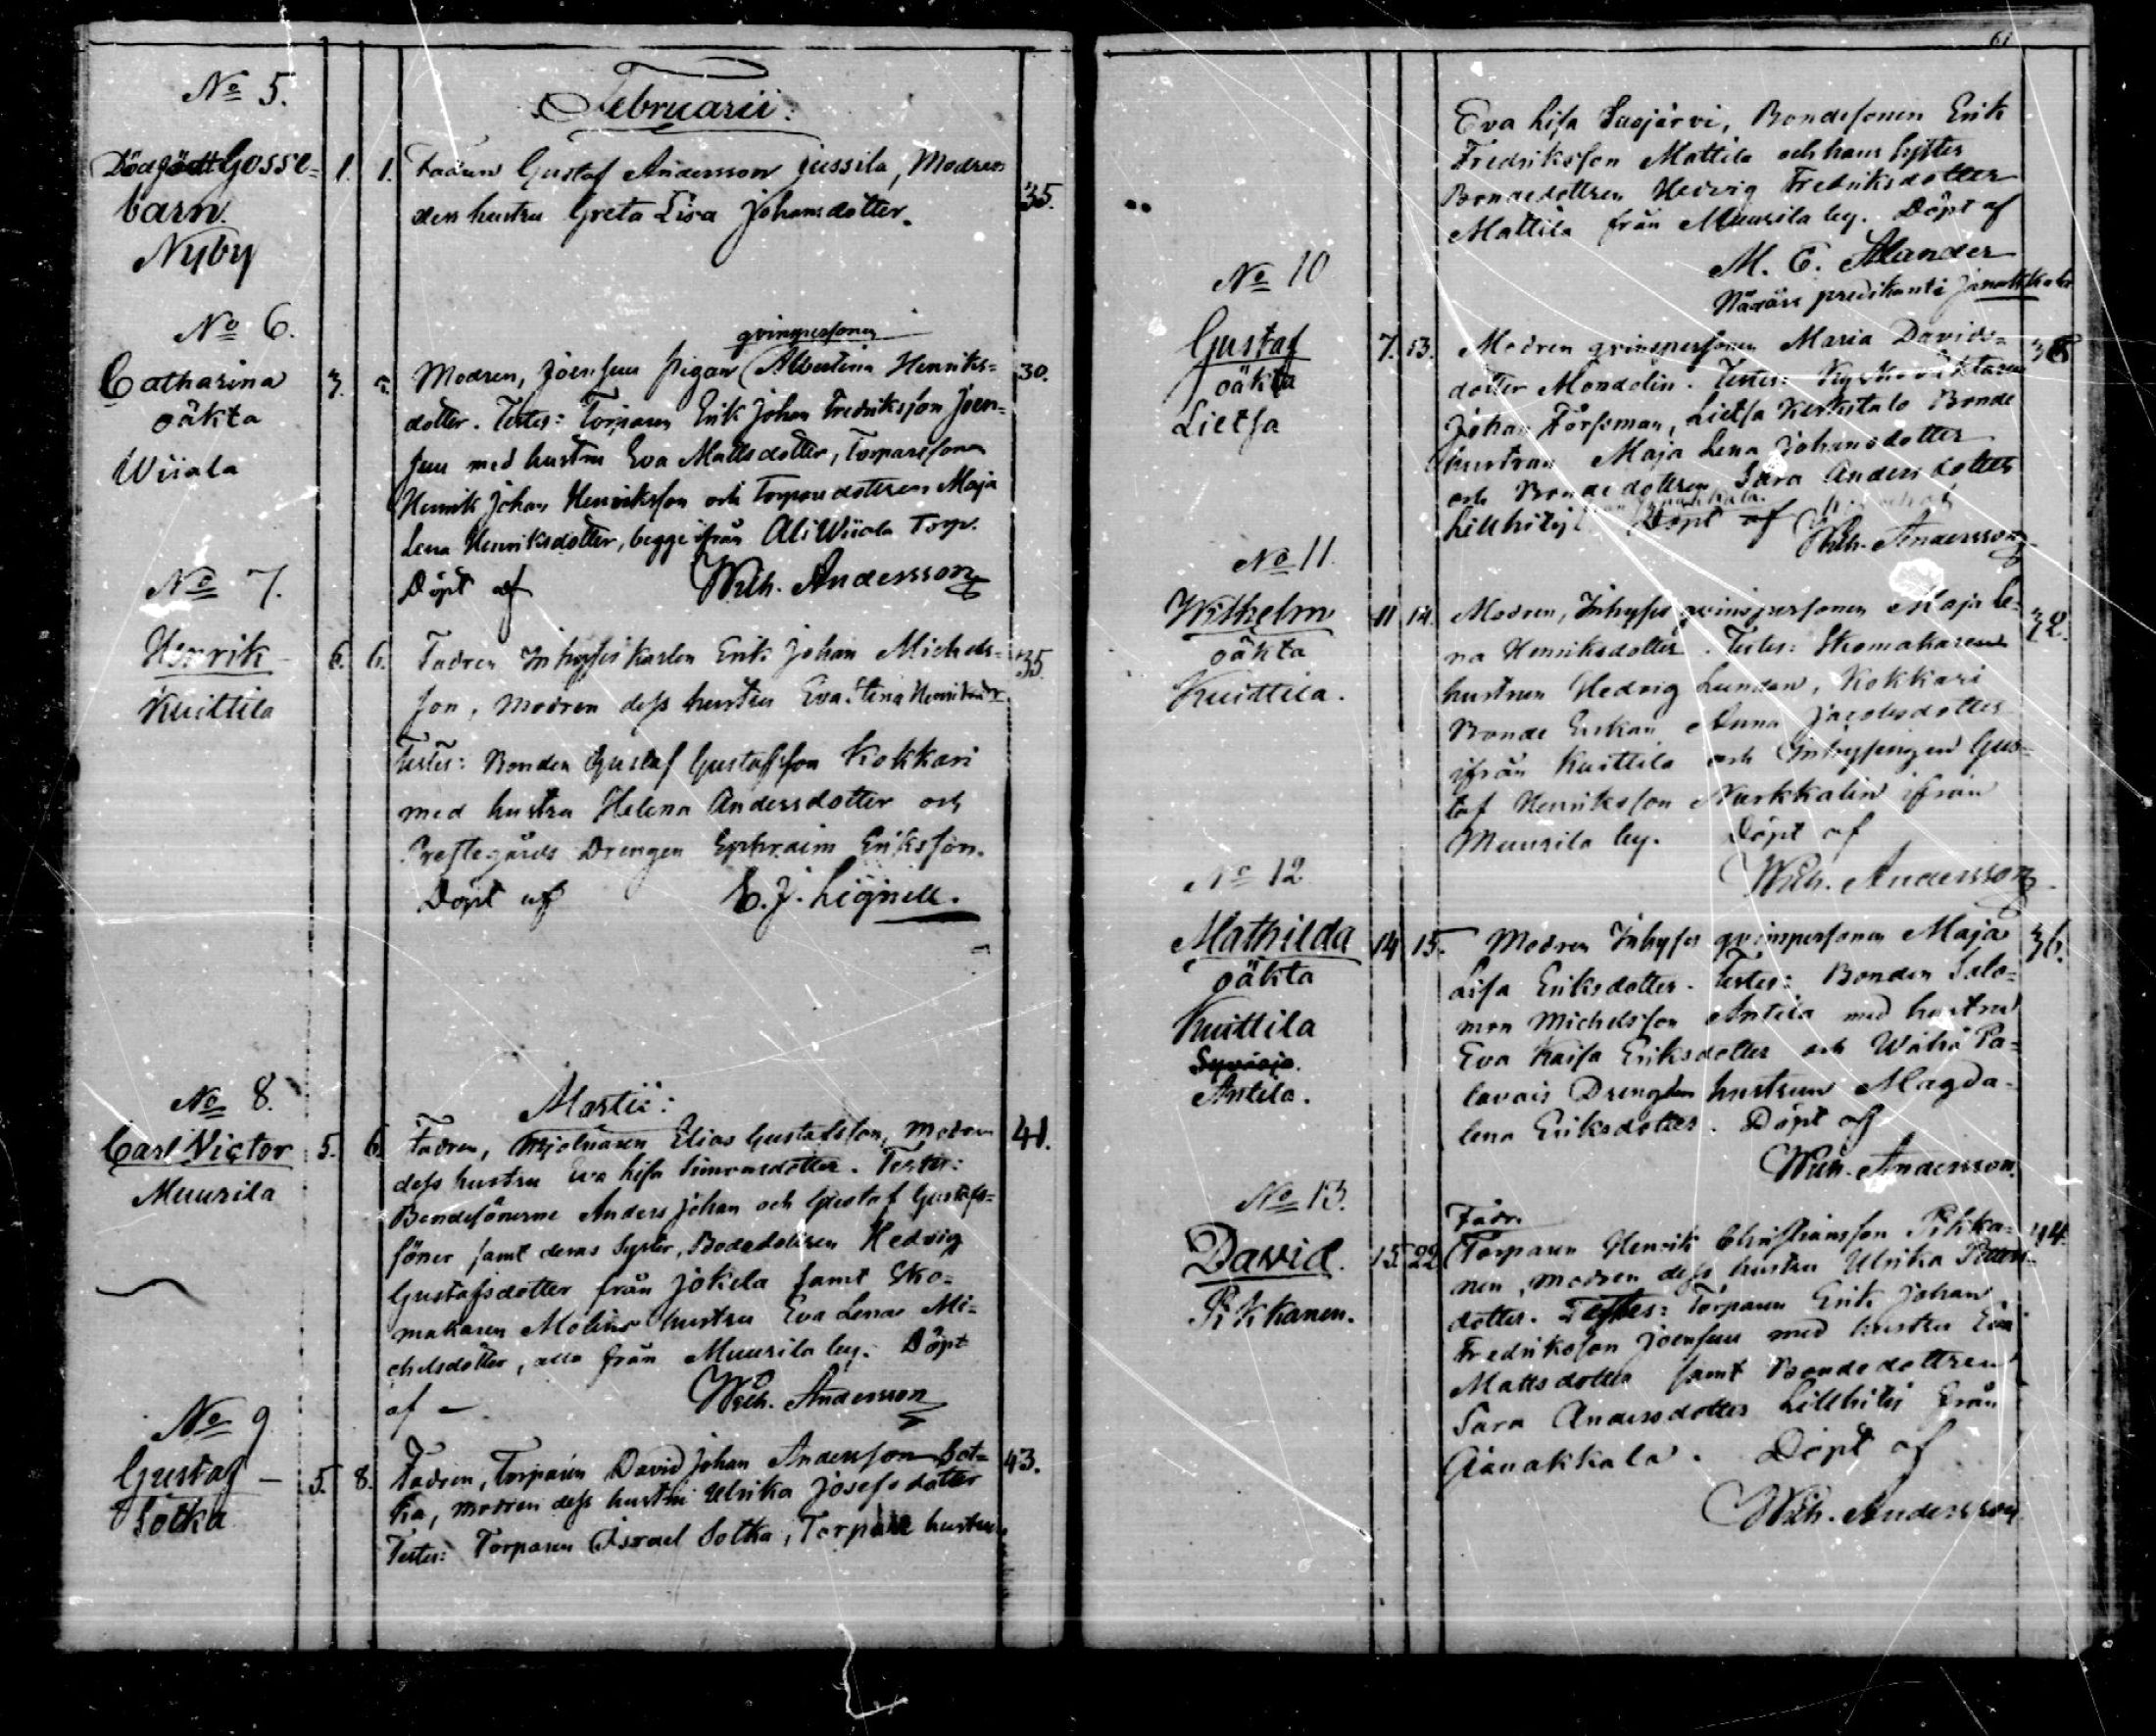 No 5.
Februarii:
Dödfödt Gosse-
barn.
Nyby
1. 1. Fadren Gustaf Andersson Jussila, Modren
dess hustru Greta Lisa Johansdotter.
35.
No 6.
Catharina
oäkta
Wiiala
qvinspersonen
3. Modren, Joensuu pigan Albertina Henriks-
30.
dotter. Testes: Torparen Erik Johan Fredriksson Joen-
suu med hustru Eva Mattsdotter, Torparesonen
Henrik Johan Henriksson och Torparedottren Maja
Lena Henriksdotter, begge ifrån Ali Wiiala Torp.
Döpt af Wilh. Andersson
No 7.
Henrik
Kuittila
6. 6. Fadren Inhyses karlen Erik Johan Michels-
35.
son, modren dess hustru Eva Stina Henriksdr
Testes: Bonden Gustaf Gustafsson Kokkari
med hustru Helena Andersdotter och
Prestegårds Drengen Ephraim Eriksson.
Döpt af E. J. Lignell.
Martii:
No 8.
Carl Victor
Muurila
5. 6. Fadren, Mjölnaren Elias Gustafsson, modren
41.
dess hustru Eva Lisa Simonsdotter. Testes:
Bondesönerne Anders Johan och Gustaf Gustafs-
söner samt deras Syster, Bodedottren Hedvig
Gustafsdotter från Jokela samt Sko-
makaren Molins hustru Eva Lena Mi-
chelsdotter, alla från Muurila by. Döpt
af Wilh. Andersson
No 9
Gustaf
Sotka
5. 8. Fadren, Torparen David Johan Andersson Sot-
43.
ka, modren dess hustru Ulrika Josefsdotter
Testes: Torparen Israel Sotka, Torpare hustrun
61
Eva Lisa Susjärvi, Bondesonen Erik
Fredriksson Mattila och hans syster
Bondedottren Hedvig Fredriksdotter
Mattila från Muurila by. Döpt af
M. E. Alander
predikant i Janakkala
No 10
Gustaf
oäkta
Lietsa
7. 13. Modren qvinspersonen Maria Davids-
dotter Mondolin. Testes: Kyrkoväktaren
Johan Forssman, Lietsa Kerkistalo Bonde
hustrun Maja Lena Johansdotter
och Bondedottren Sara Andersdotter
Lillhitis Döpt af Wilh. Andersson
No 11.
Wilhelm
oäkta
Kuittila.
11 14. Modren, Inhyses qvinspersonen Maja Le-
32.
na Henriksdotter. Testes: Skomakaren
hustrun Hedvig Lundan, Kokkari
Bonde Enkan Anna Jacobsdotter
ifrån Kuittila och Inhysingen Gus-
taf Henriksson Narkkalin ifrån
Muurila by. Döpt af
Wilh. Andersson
No 12
Mathilda
oäkta
Kuittila
Antila.
14 15. Modren Inhyses qvinspersonen Maja
36.
Lisa Eriksdotter. Testes: Bonden Salo-
mon Michelsson Antila med hustru
Eva Kaisa Eriksdotter och Wähä Pa-
lavais Drengen hustrun Magda-
lena Eriksdotter. Döpt af
Wilh. Andersson.
No 13.
David.
Pikkanen.
Fadr.
15. 22 Torparen Henrik Christiansson Pikka-
44.
nen, modren dess hustru Ulrika
dotter. Testes: Torparen Erik Johan
Fredriksson Joensuu med hustru Eva
Mattsdotter samt Bondedottren
Sara Andersdotter Lillhitis från
Janakkala. Döpt af
Wilh. Andersson